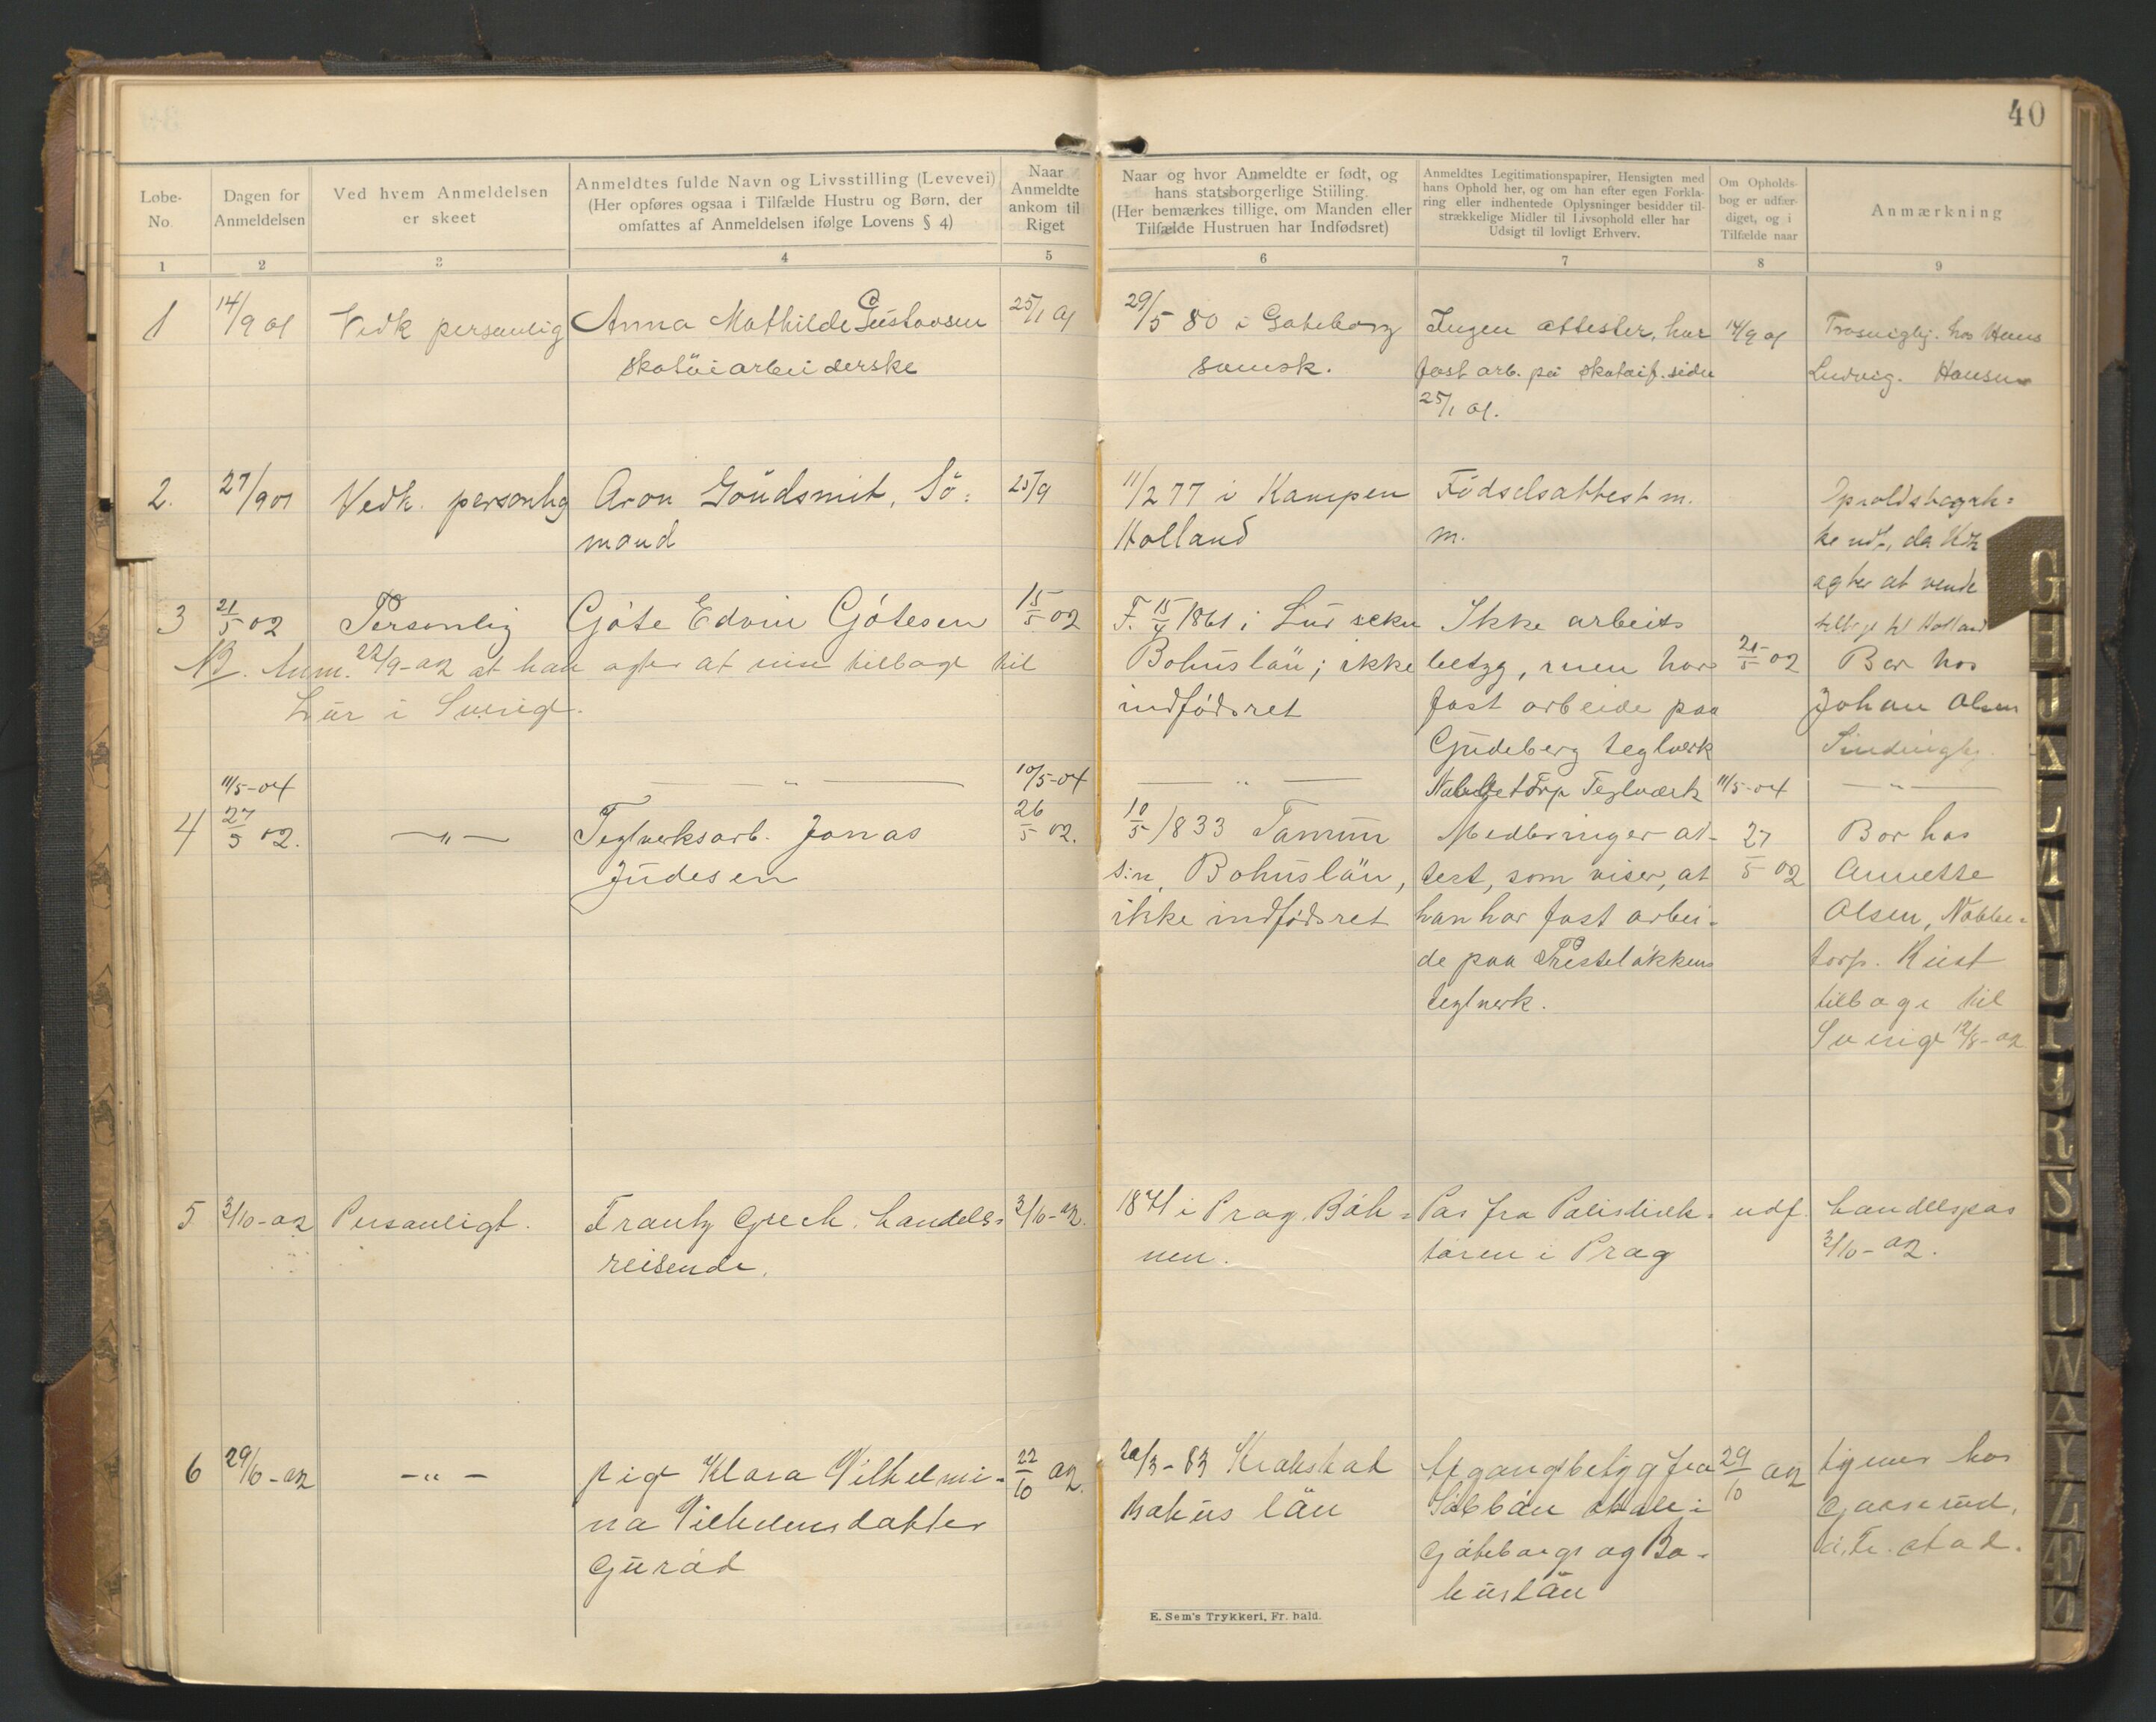 40
Løbe-
No.
Dagen for
Anmeldelsen
Ved hvem Anmeldelsen
er skeet
Anmeldtes fulde Navn og Livsstilling (Levevei)
(Her opføres ogsaa i Tilfælde Hustru og Børn, der
omfattes af Anmeldelsen ifølge Lovens § 4)
Naar
Anmeldte
ankom til
Riget
Naar og hvor Anmeldte er født, og
hans statsborgerlige Stilling.
(Her bemærkes tillige, om Manden eller
Tilfælde Hustruen har Indfødsret)
Anmeldtes Legitimationspapirer, Hensigten med
hans Ophold her, og om han efter egen Forkla-
ring eller indhentede Oplysninger besidder til-
strækkelige Midler til Livsophold eller har
Udsigt til lovligt Erhverv.
Om Opholds-
bog er udfær-
diget, og i
Tilfælde naar
Anmærkning
1 2 3 4 5 6 7 8 9
1
14/9 01
Vedk personlig
Anna Mathilde Gustavsen
skotöiarbeiderske
25/1 01
29/5 80 i Gøteborg
svensk.
Ingen attester, har
fast arb. på skotöif. siden
25/1 01.
14/9 01
Trosvigbg. hos Hans
Ludvig. Hansen
2.
27/9 01
Vedk. personlig
Aron Goudsmit, Sö-
mand
25/9
11/2 77 i Kampen
Holland
Födselsattest m.
m.
Opholdsbog ik-
ke udf., da Vdk
agter at vende
tilbage til Holland
3
21/5 02
Personlig
Göte Edvin Götesen
15/5 02
F. 15/4 1861 i Lur sokn
Bohuslän; ikke
indfødsret
Ikke arbeids
betyg, men har
fast arbeide paa
Gudeberg teglverk
21/5-02
Bor hos
Johan Olsen
NB. Anm. 22/9-02 at han agter at reise tilbage til
Lur i Sverige.
11/5-04
— " —
10/5-04
— " —
Nabbetorp Teglværk
11/5-04
— " —
4
27/5 02.
— " —
Teglverksarb. Jonas
Judesen
26/5 02.
10/5 1833 Tanum
s:n, Bohuslän,
ikke indfødsret
Medbringer at-
test, som viser, at
han har fast arbei-
de paa Presteløkkens
teglverk.
27/5 02
Bor hos
Annette
Olsen, Nabbe-
torp. Reist
tilbage til
Sverige 12/8-02
5
3/10-02
Personligt.
Frantz Grech, handels-
reisende.
3/10-02.
1871 i Prag. Böh-
men.
Pas fra Polisdirek-
tøren i Prag
udf.
handelspas
3/10-02.
6
29/10-02
— " —
pige Klara Vilhelmi-
na Vilhelmsdatter
Guröd
22/10 02.
20/3-83 Krokstad
Bohus län
Afgangsbetyg fra
skole i
Göteborgs og Bo-
huslän
29/10 02
tjener hos
Gaaserud,
i Fr.stad.
E. Sem's Trykkeri, Fr. hald.
G
H
I
J
K
L
M
N
O
P
Q
R
S
T
U
W
A
Y
Z
Æ
Ø